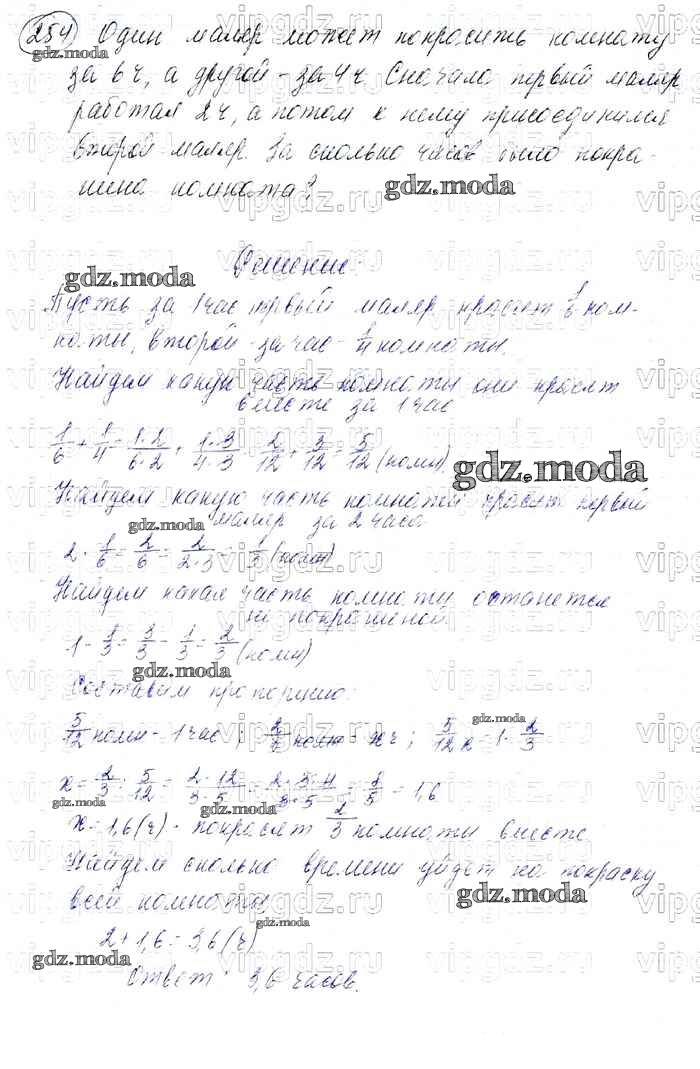 254) Один маляр может покрасить комнату
за 6 ч, а другой - за 4 ч. Сначала первый маляр
работал 2 ч, а потом к нему присоединился
второй маляр. За сколько часов было покра-
шена комната?
gdz.moda
Решение
gdz.moda
Пусть за 1 час первый маляр красит 1/6 ком-
наты, второй - за час - 1/4 комнаты.
Найдем какую часть комнаты они красят
вместе за 1 час
1/6 + 1/4 = 1·2/6·2 + 1·3/4·3 = 2/12 + 3/12 = 5/12 (комн)
gdz.moda
Найдем какую часть комнаты красит первый
маляр за 2 часа
gdz.moda
2 · 1/6 = 2/6 = 2/2·3 = 1/3 (комн)
Найдем какая часть комнаты останется
не покрашеной.
1 - 1/3 = 3/3 - 1/3 = 2/3 (комн)
gdz.moda
Составим пропорцию:
gdz.moda
5/12 комн - 1 час ; 2/3 комн - x ч ; 5/12 x = 1 · 2/3
gdz.moda
x = 2/3 : 5/12 = 2·12/3·5 = 2·3·4/3·5 = 8/5 = 1,6
gdz.moda
gdz.moda
x = 1,6 (ч) - покрасят 2/3 комнаты вместе
Найдем сколько времени уйдет на покраску
gdz.moda
всей комнаты
gdz.moda
2 + 1,6 = 3,6 (ч)
gdz.moda
Ответ: 3,6 часов.